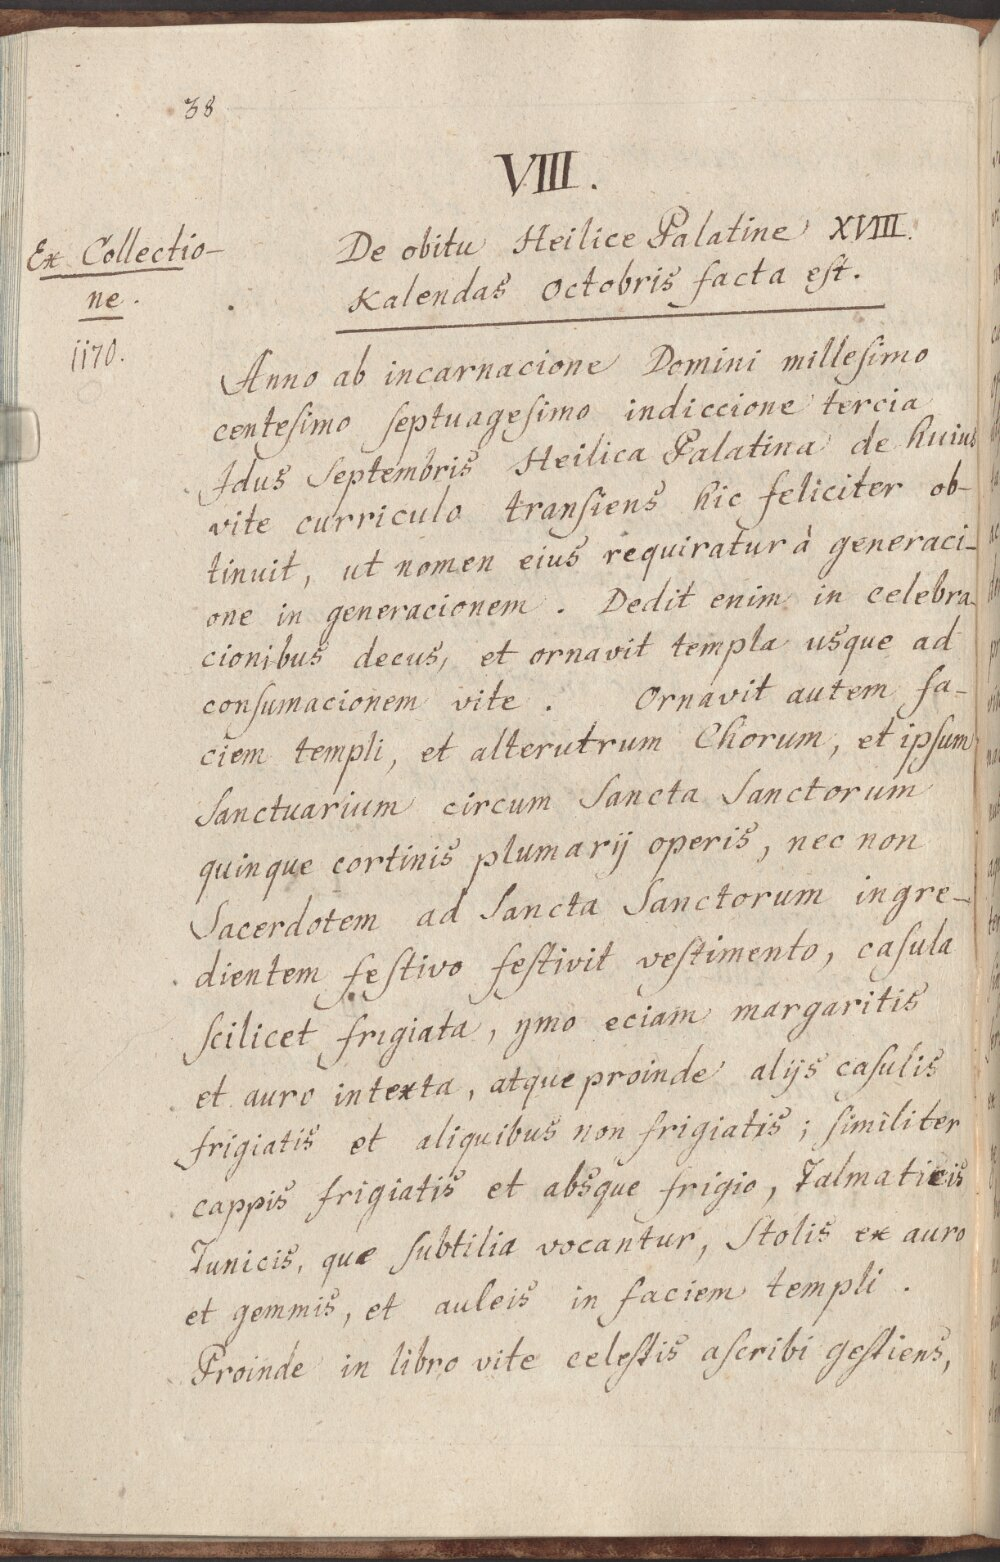 38
VIII.
Ex Collectio-
ne.
1170.
De obitu Heilice Palatine XVIII.
Kalendas Octobris facta eſt.
Anno ab incarnacione Domini milleſimo
centeſimo ſeptuageſimo indiccione tercia
Idus Septembris Heilica Palatina de huius
vite curriculo tranſiens hic feliciter ob-
tinuit, ut nomen eius requiratur à generaci-
one in generacionem. Dedit enim in celebra-
cionibus decus, et ornavit templa usque ad
conſumacionem vite. Ornavit autem fa-
ciem templi, et alterutrum Chorum, et ipſum
Sanctuarium circum Sancta Sanctorum
quinque cortinis plumarij operis, nec non
Sacerdotem ad Sancta Sanctorum ingre-
dientem feſtivo feſtivit veſtimento, caſula
ſcilicet frigiata, ymo eciam margaritis
et auro intexta, atque proinde alijs caſulis
frigiatis et aliquibus non frigiatis; ſimiliter
cappis frigiatis et absque frigio, Talmaticis
Tunicis, que ſubtilia vocantur, Stolis ex auro
et gemmis, et auleis in faciem templi.
Proinde in libro vite celeſtis aſcribi geſtiens,